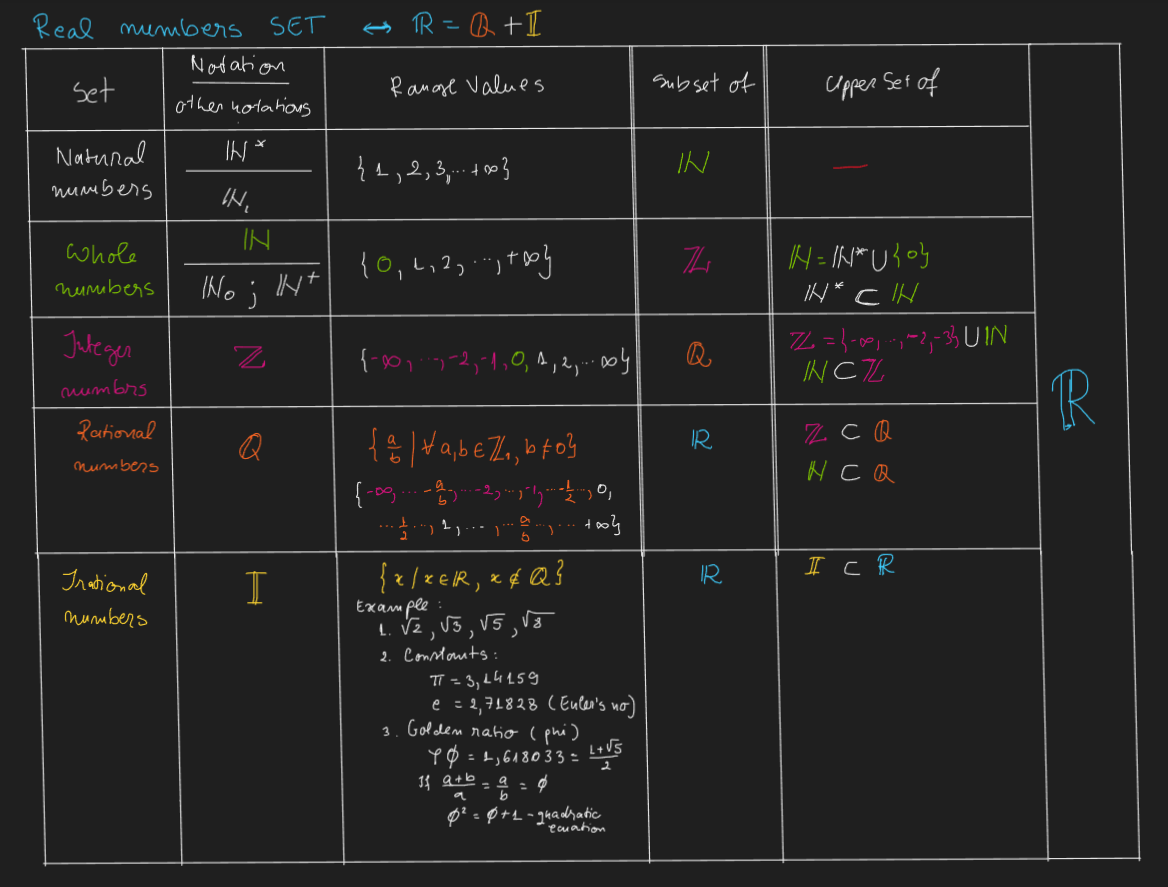 Real numbers SET ↔ ℝ = ℚ + 𝕀
Set
Notation
other notations
Range Values
Subset of
Upper Set of
Natural
numbers
ℕ*
ℕ₁
{1, 2, 3, ... +∞}
ℕ
—
Whole
numbers
ℕ
ℕ₀ ; ℕ⁺
{0, 1, 2, ..., +∞}
ℤ
ℕ = ℕ* ∪ {0}
ℕ* ⊂ ℕ
Integer
numbrs
ℤ
{-∞, ..., -2, -1, 0, 1, 2, ... ∞}
ℚ
ℤ = {-∞, .., -2, -3} ∪ ℕ
ℕ ⊂ ℤ
ℝ
Rational
numbers
ℚ
{a/b | ∀ a, b ∈ ℤ, b ≠ 0}
{-∞, ... -a/b, ... -2, ..., -1, ... -1/2 ..., 0,
... 1/2 ..., 1, ... , ... a/b ..., ... +∞}
ℝ
ℤ ⊂ ℚ
ℕ ⊂ ℚ
Irational
numbers
𝕀
{x / x ∈ ℝ, x ∉ ℚ}
Example :
1. √2, √3, √5, √8
2. Constants :
π = 3,14159
e = 2,71828 (Euler's no)
3. Golden ratio ( phi )
φ ϕ = 1,618033 = (1+√5)/2
If (a+b)/a = a/b = ϕ
ϕ² = ϕ + 1 - quadratic
equation
ℝ
𝕀 ⊂ ℝ